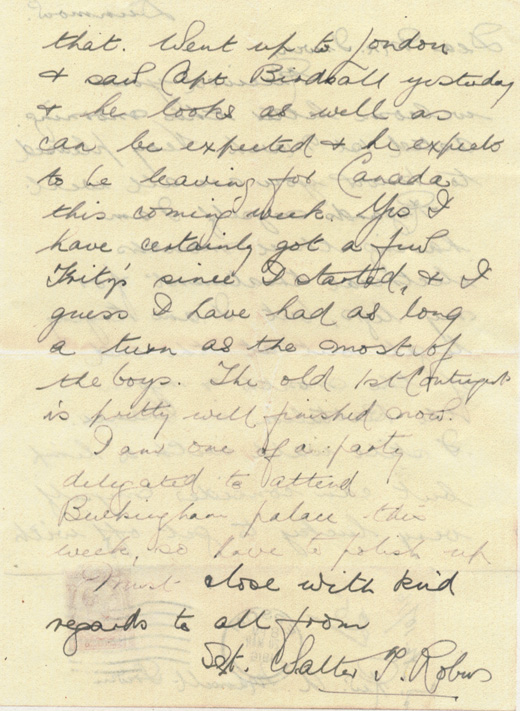 that. Went up to London
& saw Capt. Birdsall yesterday
& he looks as well as
can be expected & he expects
to be leaving for Canada
this coming week. Yes I
have certainly got a few
Fritz's since I started, & I
guess I have had as long
a turn as the most of
the boys. The old 1st Contingent
is pretty well finished now.
I am one of a party
delegated to attend
Buckingham palace this
week, so have to polish up
Must close with kind
regards to all from
Sgt. Walter T. Robus